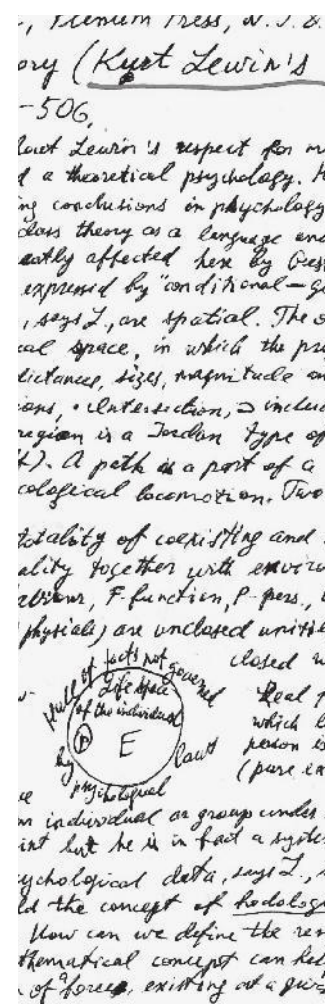 , Plenum Press, N. J. &
ory (Kurt Lewin's
-506,
Kurt Lewin's respect for m
d a theoretical psychology. H
ng conclusions in psychology
class theory as a language and
eatly affected here by Gess
expressed by "conditional-ge
, says L, are spatial. The s
cal space, in which the pr
distance, sizes, magnitude an
ons, · Intersection, ⊃ includ
region is a Jordan type of
t). A path is a part of a
cological locomotion. Two
totality of coexisting and
ality together with enviro
F-function, P-pers.,
physials) are unclosed unities
closed w
place of facts not governed
Life space
of the individual
P E
by psychological laws
Real p
which b
person is
(pure ex
ne
n individual or group under
int but he is in fact a syste
ychological data, says L.,
ld the concept of hodolog
How can we define the res
thematical concept can hel
of forces, existing at a give